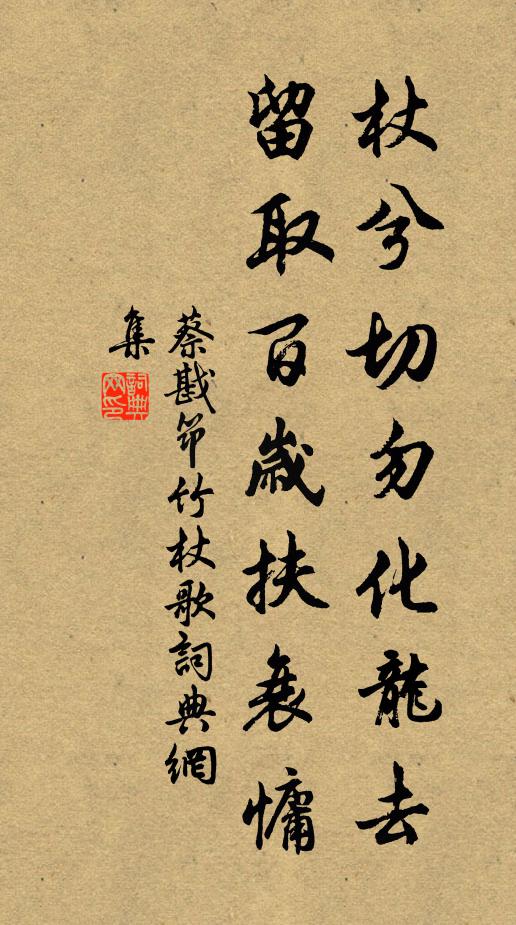 杖兮切勿化龍去
留取百歲扶衰慵
蔡戡笻竹杖歌詞典網
集
詞典網印